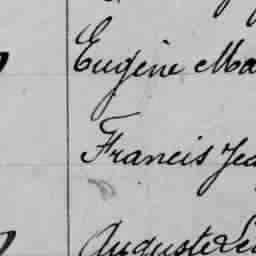 Eugène Ma
Francis Jea
Auguste Le